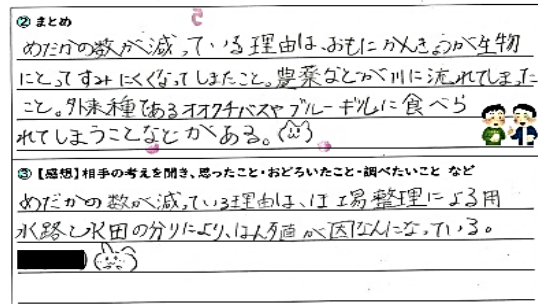 ② まとめ
めだかの数が減っている理由は、おもにかんきょうが生物
にとってすみにくくなってしまたこと。農薬などが川に流れてしまった
こと。外来種であるオオクチバスやブルーギルに食べら
れてしまうことなどがある。
③【感想】相手の考えを聞き、思ったこと・おどろいたこと・調べたいこと など
めだかの数が減っている理由は、ほ場整理による用
水路と水田の分りにより、はん殖が困なんになっている。